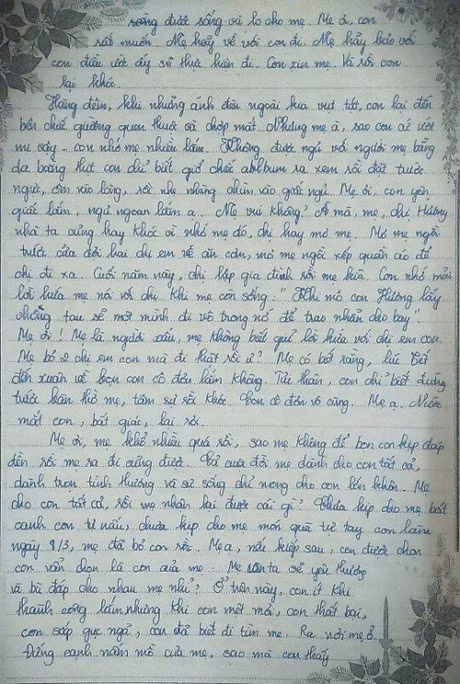 rằng được sống và lo cho mẹ. Mẹ ơi, con
rất muốn. Mẹ hãy về với con đi. Mẹ hãy bảo với
con điều ước ấy sẽ thực hiện đi. Con xin mẹ. Và rồi con
lại khóc.
Hàng đêm, khi những ánh đèn ngoài kia vụt tắt, con lại đến
bên chiếc giường quen thuộc và chợp mắt. Nhưng mẹ à, sao con cứ ước
mơ vậy - con nhớ mẹ nhiều lắm. Không được ngủ với người mẹ bằng
da bằng thịt con chỉ biết giở chiếc abllbum ra xem rồi đặt trước
ngực, ôm vào lòng, rồi nhẹ nhàng chìm vào giấc ngủ. Mẹ ơi, con yên
giấc lắm, ngủ ngoan lắm ạ... Mẹ vui không? À mà, mẹ, chị Hương
nhà ta cũng hay khóc vì nhớ mẹ đó, chị hay mơ mẹ. Mơ mẹ ngồi
trước cửa đợi hai chị em về ăn cơm, mơ mẹ ngồi xếp quần áo để
chị đi xa. Cuối năm nay, chị lập gia đình rồi mẹ kìa. Con nhớ mãi
lời hứa mẹ nói với chị khi mẹ còn sống: "Khi mô con Hương lấy
chồng tau sẽ một mình đi vô trong nớ để trao nhẫn cho tay".
Mẹ ơi! Mẹ là người xấu, mẹ không biết giữ lời hứa với chị em con.
Mẹ bỏ 2 chị em con mà đi thật rồi ư? Mẹ có biết rằng, lúc Tết
đến xuân về bọn con cô đơn lắm không. Tủi thân, con chỉ biết đứng
trước bàn thờ mẹ, tâm sự rồi khóc. Con cô đơn vô cùng. Mẹ ạ. Nước
mắt con, bất giác, lại rơi.
Mẹ ơi, mẹ khổ nhiều quá rồi, sao mẹ không để bọn con kịp đáp
đền rồi mẹ ra đi cũng được. Cả cuộc đời mẹ dành cho con tất cả,
dành trọn tình thương và sự sống chỉ mong cho con lớn khôn. Mẹ
cho con tất cả, rồi mẹ nhận lại được cái gì? Chưa kịp cho mẹ bát
canh con tự nấu, chưa kịp cho mẹ món quà từ tay con làm
ngày 8/3, mẹ đã bỏ con rồi. Mẹ ạ, nếu kiếp sau, con được chọn
con vẫn chọn là con của mẹ. Mẹ con ta sẽ yêu thương
và bù đắp cho nhau mẹ nhỉ? Ở trên này, con ít khi
thành công lắm nhưng khi con mệt mỏi, con thất bại,
con sắp gục ngã, con đã biết đi tìm mẹ. Ra nơi mẹ ở.
Đứng cạnh nấm mồ của mẹ, sao mà con thấy